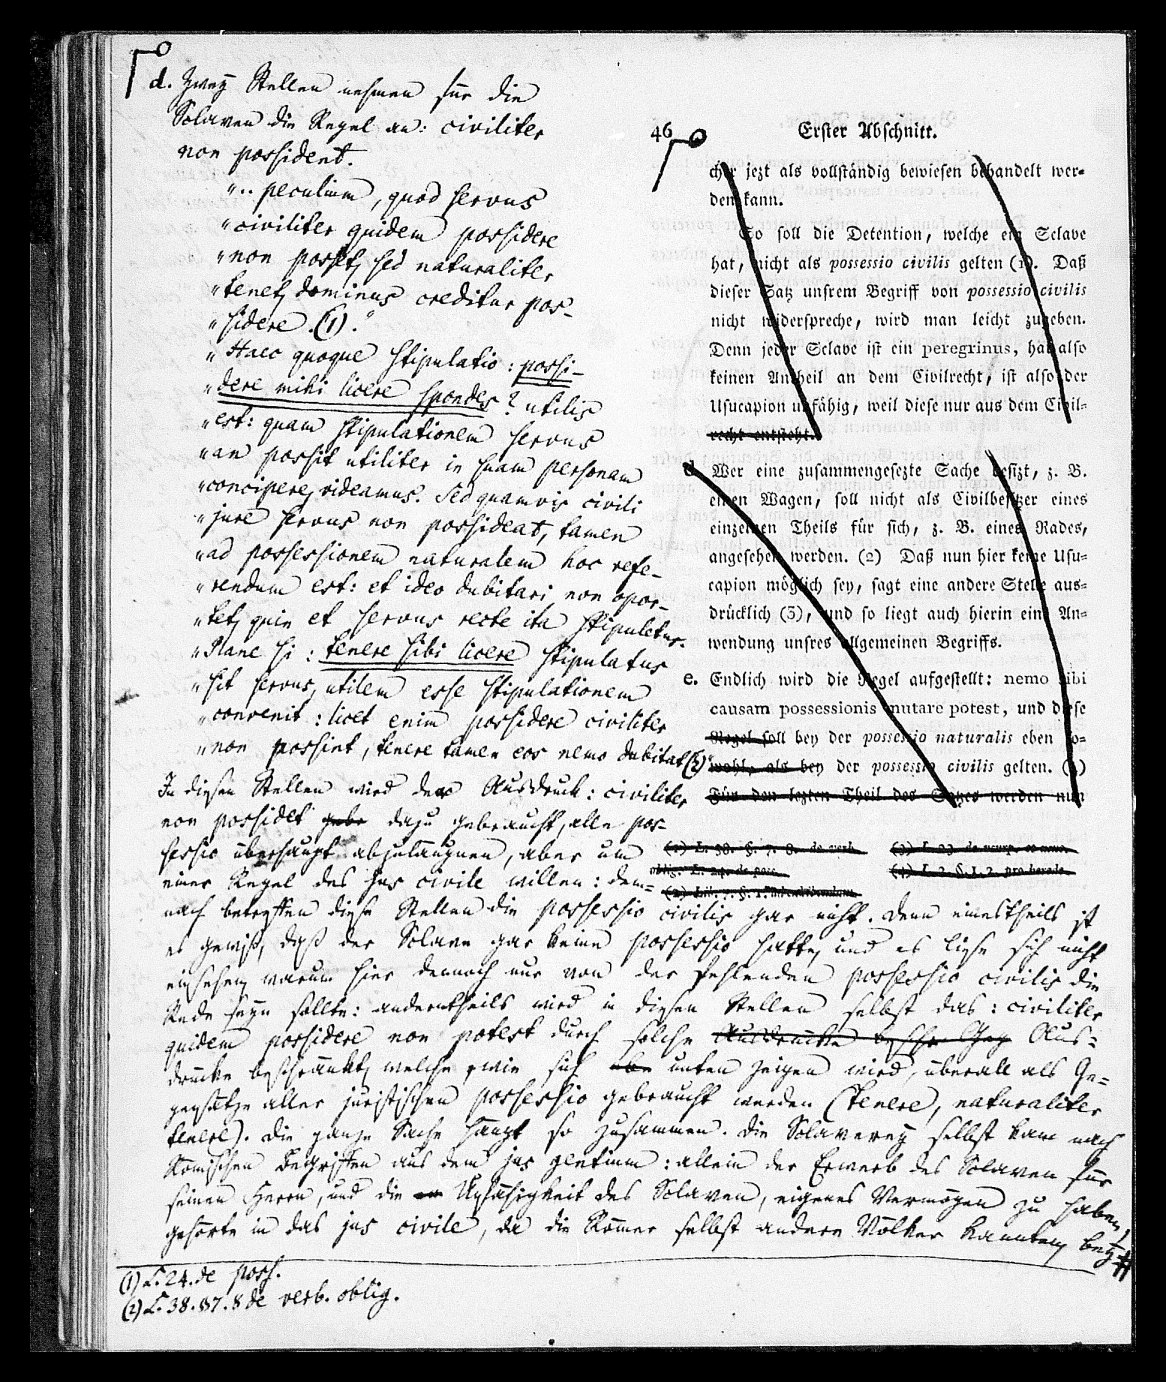 d. Zwey Stellen nehmen für die
Sclaven die Regel an: civiliter
non possident.
„.. peculium, quod servus
„civiliter quidem possidere
„non posset, sed naturaliter
„tenet, dominus creditur pos-
„sidere. (1).“
„Haec quoque stipulatio: possi-
„dere mihi licere spondes? utilis
„est: quam stipulationem servus
„an possit utiliter in suam personam
„concipere, videamus. Sed quamvis civili
„jure servus non possideat, tamen
„ad possessionem naturalem hoc refe-
„rendum est: et ideo dubitari non opor-
„tet, quin et servus recte ita stipuletur.
„Plane si: tenere sibi licere stipulatus
„sit servus, utilem esse stipulationem
„convenit: licet enim possidere civiliter
„non possint, tenere tamen eos nemo dubitat (2)“
In diesen Stellen wird der Ausdruck: civiliter
non possidet gebr dazu gebraucht, alle pos-
sessio überhaupt abzuläugnen, aber um
einer Regel des jus civile willen: dem-
nach betreffen diese Stellen die possessio civilis gar nicht. Denn einestheils ist
es gewiß, daß der Sclave gar keine possessio hatte, und es ließe sich nicht
einsehen, warum hier dennoch nur von der fehlenden possessio civilis die
Rede seyn sollte: anderntheils wird in diesen Stellen selbst das: civiliter
quidem possidere non potest durch solche Ausdrücke Aus-
drücke beschränkt, welche, wie sich unten zeigen wird, überall als Ge-
gensätze aller juristischen possessio gebraucht werden (tenere, naturaliter
tenere). Die ganze Sache hängt so zusammen. Die Sclaverey selbst kam nach
Römischen Begriffen aus dem jus gentium: allein der Erwerb des Sclaven für
seinen Herrn, und die Unfähigkeit des Sclaven, eigenes Vermögen zu haben,
gehörte in das jus civile, da die Römer selbst andere Völker kannten, bey
(1) L. 24. de poss.
(2) L. 38. §7. 8 de verb. oblig.
46 Erster Abschnitt.
cher jezt als vollständig bewiesen behandelt wer-
den kann.
So soll die Detention, welche ein Sclave
hat, nicht als possessio civilis gelten (1). Daß
dieser Satz unsrem Begriff von possessio civilis
nicht widerspreche, wird man leicht zugeben.
Denn jeder Sclave ist ein peregrinus, hat also
keinen Antheil an dem Civilrecht, ist also der
Usucapion unfähig, weil diese nur aus dem Civil-
recht entsteht.
Wer eine zusammengesezte Sache besizt, z. B.
einen Wagen, soll nicht als Civilbesitzer eines
einzelnen Theils für sich, z. B. eines Rades,
angesehen werden. (2) Daß nun hier keine Usu-
capion möglich sey, sagt eine andere Stelle aus-
drücklich (3), und so liegt auch hierin eine An-
wendung unsres allgemeinen Begriffs.
e. Endlich wird die Regel aufgestellt: nemo sibi
causam possessionis mutare potest, und diese
Regel soll bey der possessio naturalis eben so-
wohl, als bey der possessio civilis gelten. (4)
Für den lezten Theil des Satzes werden nun
(1) L. 38. §. 7. 8. de verb.
oblig. L. 24. de poss.
(3) L. 23. de usurp.
(4) L. 2. §. 1. 2. pro herede.